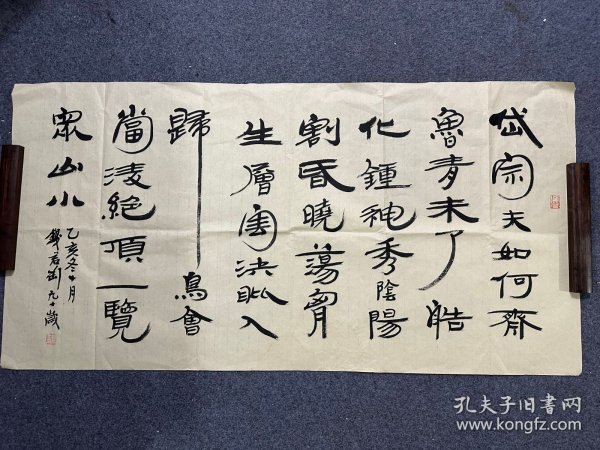 岱宗夫如何齊
魯青未了艁
化鍾神秀陰陽
割昏曉蕩胷
生層雲決眦入
歸鳥會
當凌絕頂一覽
眾山小
乙亥冬十月
九十歲
孔夫子旧书网
www.kongfz.com